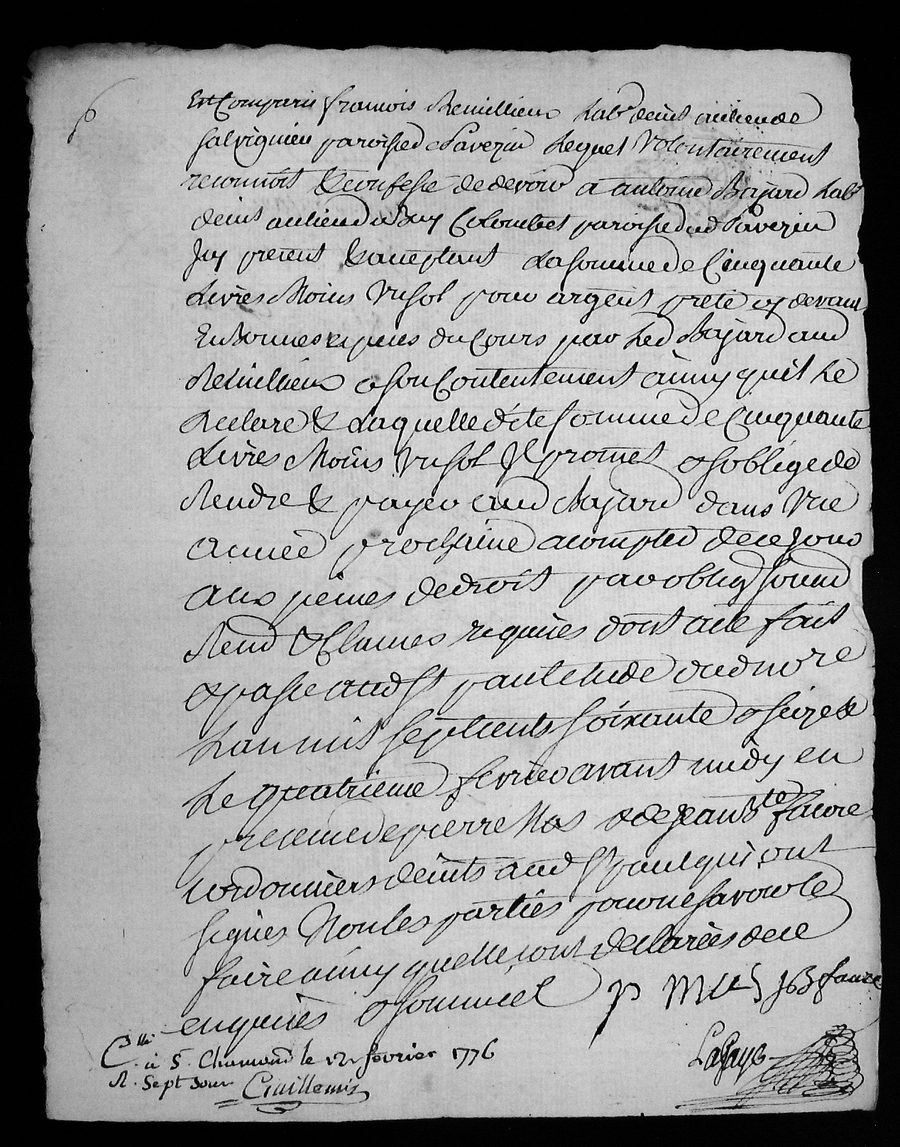 Est Comparu francois Revillieux Lab.r demt au lieu de
salvignieu paroisse de Pavezin Lequel Volontairement
reconnoit & confesse de devoir a antoine Bajard Lab.r
demt au lieu de Puy Colombet paroisse dud Pavezin
Icy present & acceptant La somme de Cinquante
Livres Moins un sol pour argent prété cy devant
En Bonnes espèces du Cours par Led Bajard aud
Revillieux a son Contentement ainsy quil Le
Declare & Laquelle ditte somme de Cinquante
Livres Moins un sol Il promet & soblige de
Rendre & payer aud Bajard dans une
année prochaine a compter de ce jour
aux peines de droit par oblig soumd
Renond & Clauses requises dont acte fait
& passé aud St paul etude dud nore
Lan mil sept cents soixante & seize &
Le quatrieme fevrier avant midy en
presence de pierre Mas & de jean Bte faure
cordonniers demts aud St paul qui ont
signés Non les parties pour ne savoir le
faire ainsy quelle ont declarées de ce
enquises & sommées
p mas JB faure
C.llé à S. Chamond le 12 fevrier 1776
R. Sept sour
Lafaye